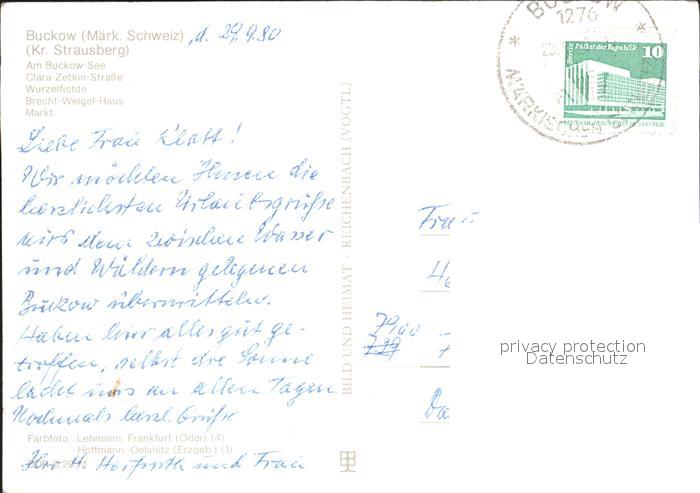 Buckow (Märk. Schweiz) , d. 29.9.80
(Kr. Strausberg)
Am Buckow-See
Clara-Zetkin-Straße
Wurzelfichte
Brecht-Weigel-Haus
Markt
Liebe Frau Klatt!
Wir möchten Ihnen die
herzlichsten Urlaubsgrüße
aus dem zwischen Wasser
und Wäldern gelegenen
Buckow übermitteln.
Haben hier alles gut ge-
troffen, selbst die Sonne
lacht uns an allen Tagen
Nochmals herzl. Grüße
Farbfoto: Lehmann, Frankfurt (Oder) (4)
Hoffmann, Oelsnitz (Erzgeb.) (1)
und Frau
BILD UND HEIMAT · REICHENBACH (VOGTL)
BUCKOW
1276
MÄRKISCHE
Berlin, Palast der Republik 10
Frau
7900
privacy protection
Datenschutz